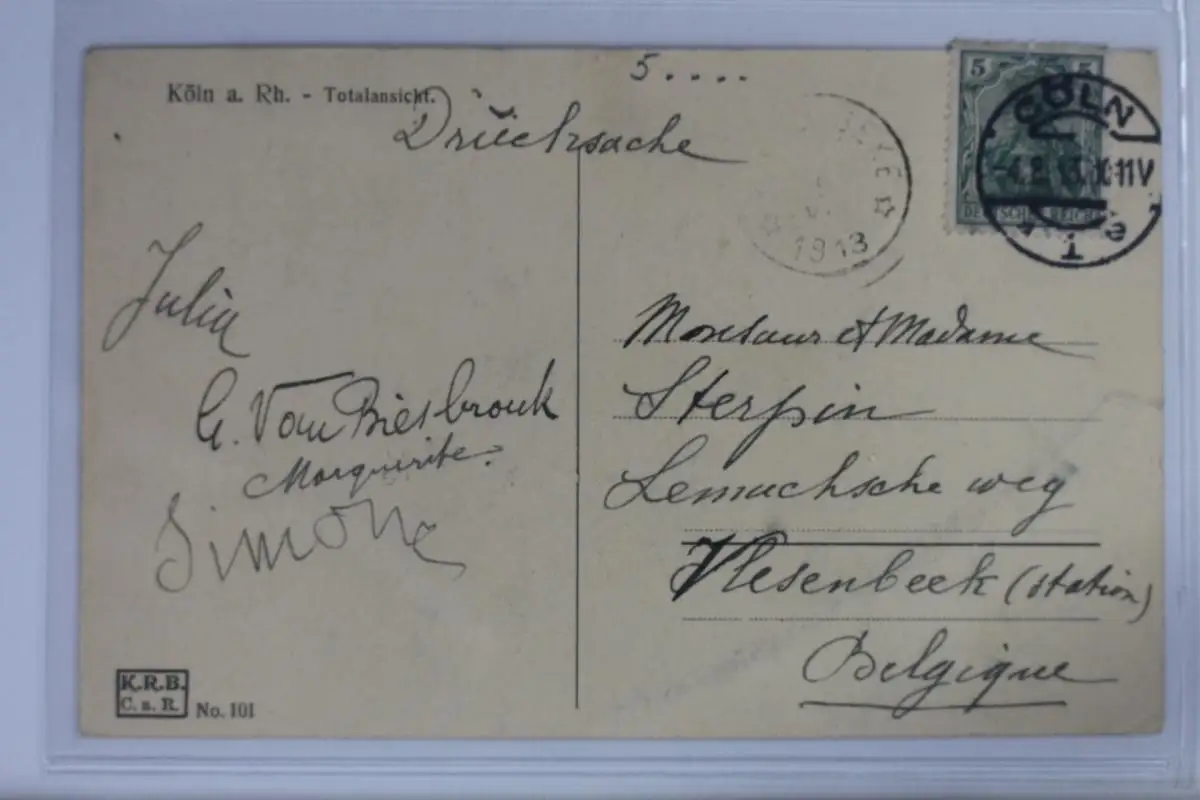 Köln a. Rh. - Totalansicht.
5....
Drücksache
5 5
DEUTSCHES REICH
CÖLN
10-11V
1 e
1913
Julia
G. Van Biesbrouk
Marguerite.
Simone
Monsieur et Madame
Sterpin
Lemachsche weg
Vlesenbeek (station)
Belgique
K.R.B.
C. a. R.
No. 101